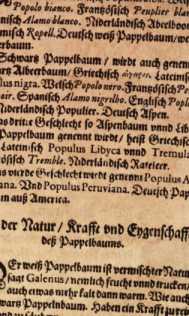 Popolo bianco. Französisch Peuplier blanc
inisch Alamo blanco. Niderländisch Abeelboom
nisch Ropell. Deutsch weiß Pappelbaum/
erbaum.
Schwartz Pappelbaum / wirdt auch genen
rtz Alberbaum/ Griechisch Lateinis
lus nigra. Welsch Popolo nero. Französisch Peu
ir. Spanisch Alamo nigrilho. Englisch Popl
Niderländisch Populier. Deutsch Aspen.
as dritte Geschlecht so Aspenbaum vnnd Lib
Pappelbaum genennt wirdt/ heißt Griechisch
Lateinisch Populus Libyca vnnd Tremula
zösisch Tremble. Niderländisch Rateleer.
as vierdte Geschlecht wirdt genennt Populus A
ana. Vnd Populus Peruviana. Deutsch Pap
m auß America.
der Natur/ Krafft vnd Eygenschafft
deß Pappelbaums.
Er weiß Pappelbaum ist vermischter Natur
sagt Galenus/ nemlich feucht vnnd trucken
auch etwas mehr kalt dann warm. Wie auch
warz Pappelnbaum. Haben ein Krafft zu